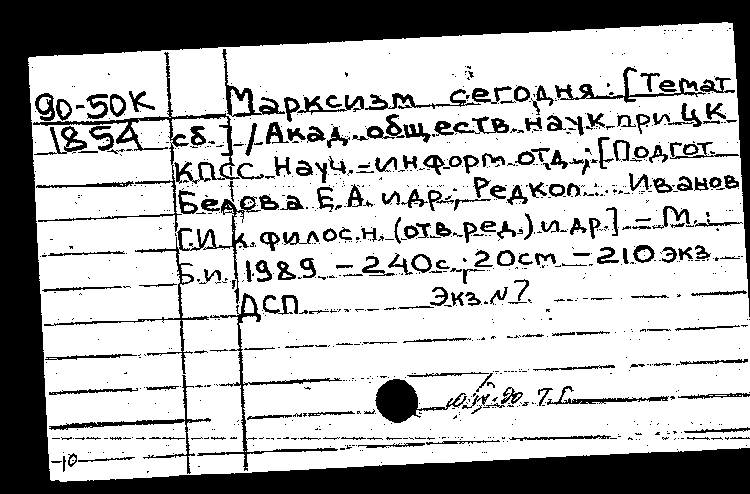 90-50К Марксизм сегодня: [Темат
1854 сб.] / Акад. обществ. наук при ЦК
КПСС. Науч.-информ. отд.; [Подгот.
Белова Е.А. и др.; Редкол.: Иванов
Г.И. к.филос.н. (отв.ред.) и др.] – М.:
Б.и., 1989 – 240с.; 20см – 210 экз.
ДСП. Экз. №7
90. Т.Г.
-10